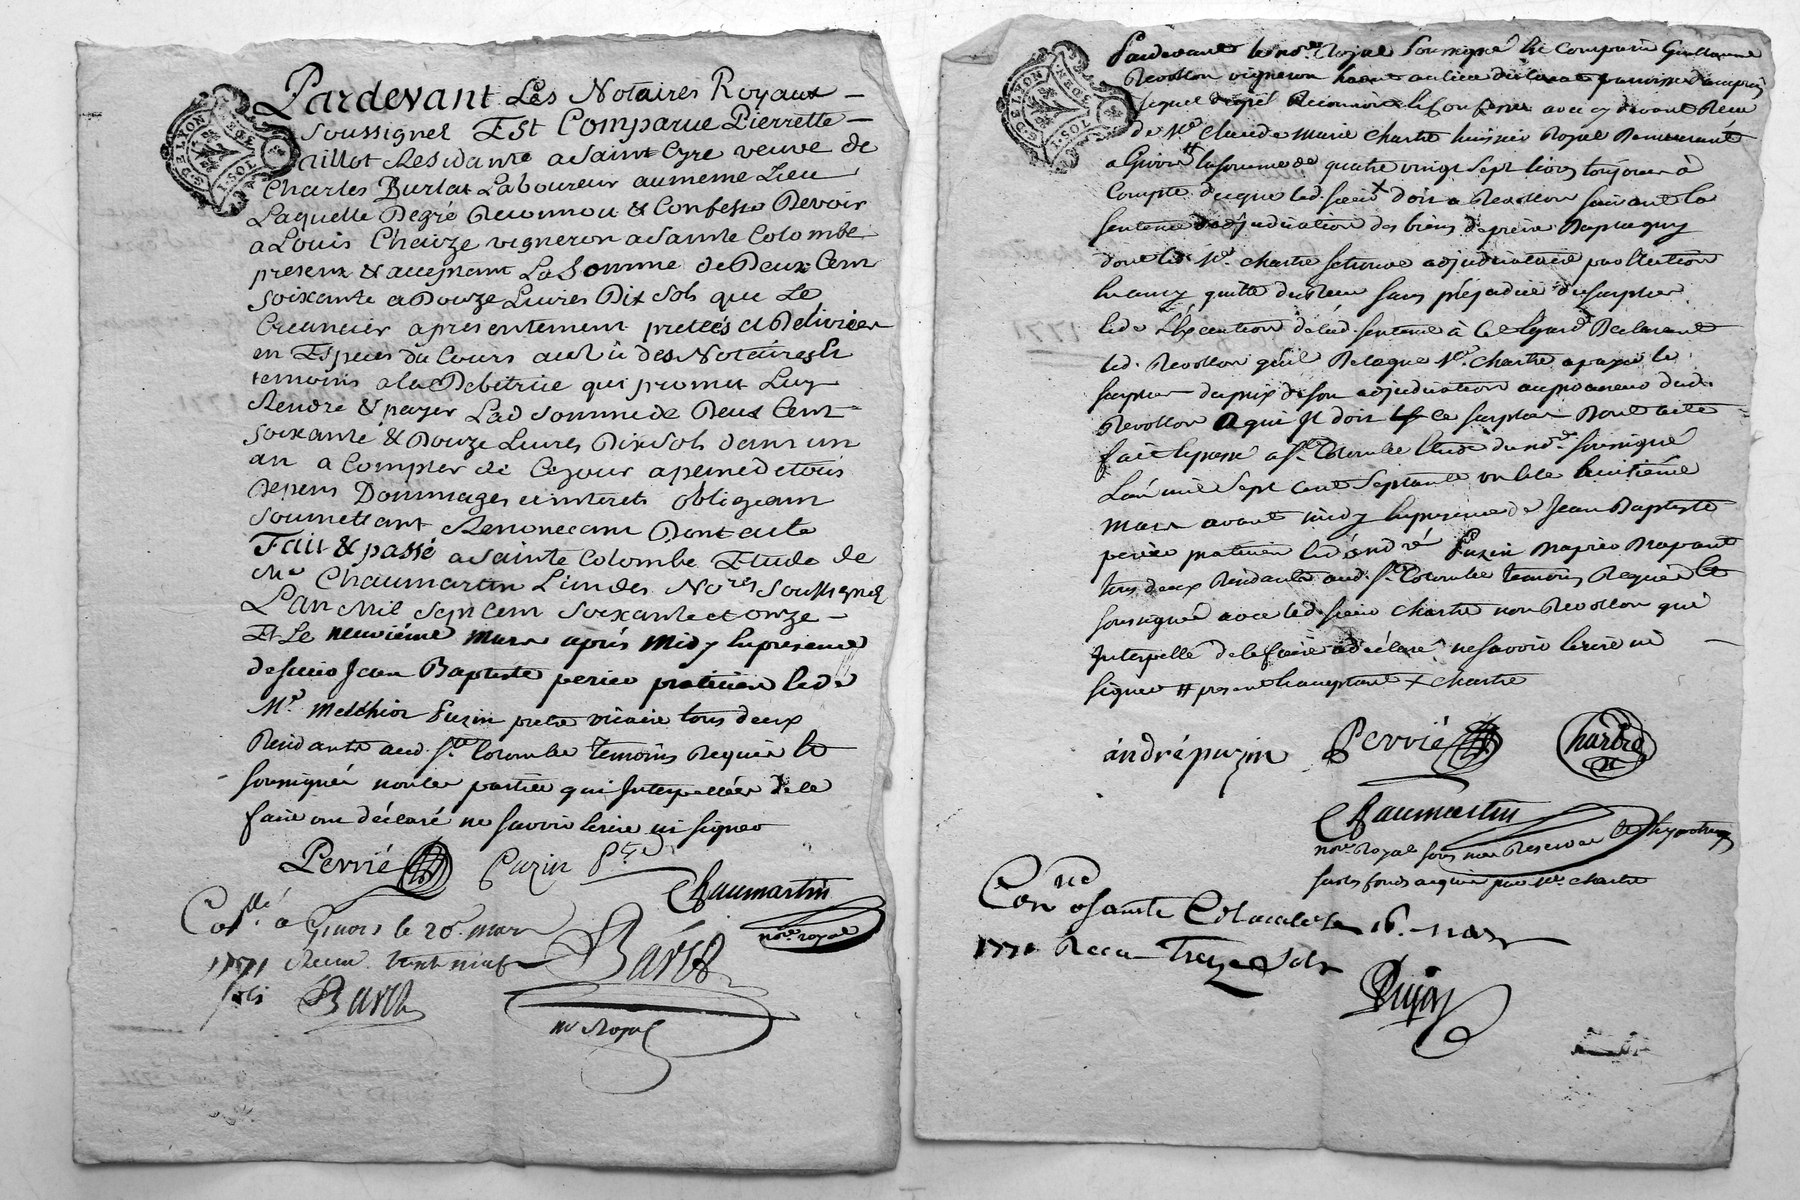 G. DE LYON
1.SOL.
Pardevant Les Notaires Royaux
Soussignez Est Comparue Pierrette
aillot Residante a Saint Cyre veuve de
Charles Burlat Laboureur au meme Lieu
Laquelle Degré Reconnou & Confesse Devoir
a Louis Chauze vigneron a Sainte Colombe
present & acceptant La Somme de Deux Cent
Soixante & Douze Livres Dix Sols que Le
Creancier a presentement pretées et Delivrées
en Especes du Cours au vû des Notaires &
temoins a la Debitrice qui promet Luy
Rendre & payer Lad Somme de Deux Cent
Soixante & Douze Livres Dix Sols dans un
an a Compter de Ce jour a peine de tous
Depens Dommages et interets obligeant
Soumettant Renoncant Dont acte
Fait & passé a Sainte Colombe Etude de
Me Chaumartin L'un des Nores Soussignez
L'an Mil Sept Cent Soixante et onze
Et Le neuvième mars après midy En presence
de sieurs Jean Baptiste perier praticien &
Mre Melchior Puzin pretre vicaire tous deux
Residants aud. Ste Colombe temoins Requis &
soussignés non les parties qui Interpellées de le
faire ont déclaré ne savoir Ecrire ni signer
Perrié Puzin ptre
Chaumartin
nore royal
Collé à Givors le 20 mars
1771 Recu vingt neuf
sols Baret
Baret
nre Royal
G. DE LYON
1.SOL.
Pardevant le nore Royal soussigné Est Comparu Guillaume
Revollon vigneron hant au lieu de paroisse d'ampuis
Lequel degré Reconnoit & Confesse avoir cy devant Reçu
de Me Claude Marie Chartre huissier Royal Demeurant
a Givors # la somme de quatre vingt Sept livres toujours à
Compte de ce que led. sieur x doit a Revollon suivant la
sentence d'adjudication des biens de pierre
dont led. Me. Chartre se trouve adjudicataire
quitte sans préjudice du surplus
& de L'Execution de lad. sentence à Cet Egard Declarant
led. Revollon qu'il Me. Chartre a payé le
surplus du prix de son adjudication
Revollon a qui Il doit ce surplus Dont acte
fait & passé a Ste Colombe Etude du nore soussigné
L'an mil Sept cent Septante un & le huitième
mars avant midy En presence de Jean Baptiste
perier praticien & d'andré Puzin
tous deux Residants aud. Ste Colombe temoins Requis &
soussignés avec led. sieur Chartre non Revollon qui
Interpellé de le faire a déclaré ne savoir Ecrire ni
signer # present & acceptant x Chartre
andré puzin Perrié Chartre
Chaumartin
nore Royal sous me Reserve de l'hypoteque
sur les fonds acquis par Me. Chartre
Conné a Sainte Colombe le 16. mars
1771 Recu Treize Sols